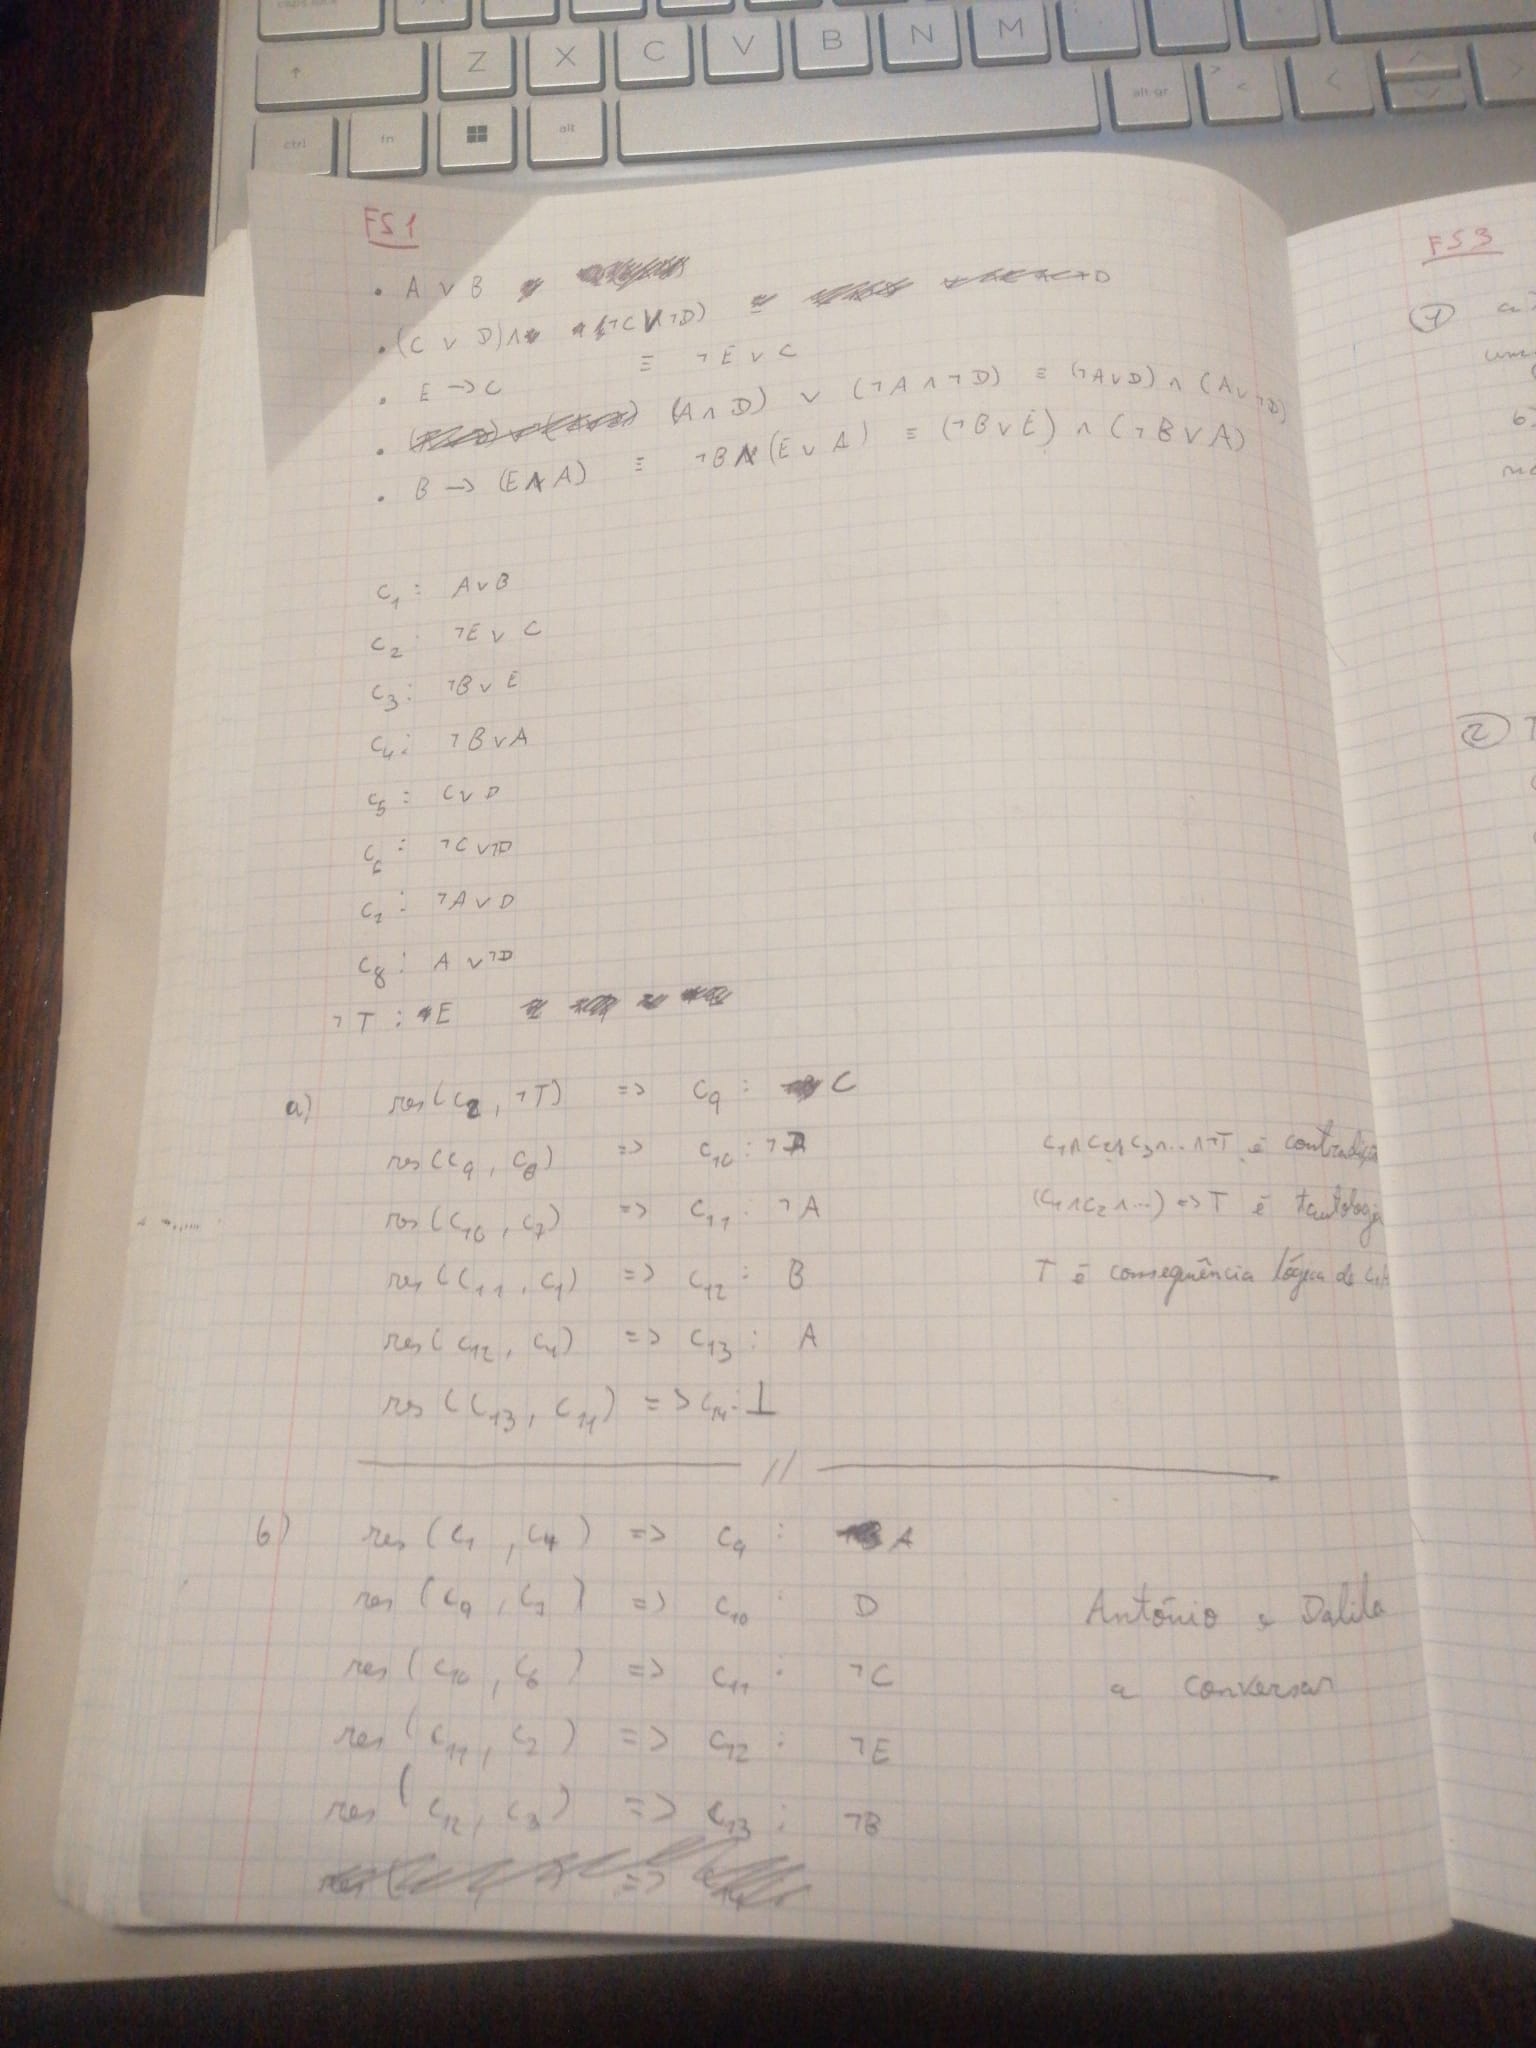 Z X C V B N M
ctrl fn alt alt gr < <
FS1
• A ∨ B
• (C ∨ D) ∧ (¬C ∨ ¬D) ≡ D
• E → C ≡ ¬E ∨ C
• (A ∧ D) ∨ (¬A ∧ ¬D) ≡ (¬A ∨ D) ∧ (A ∨ ¬D)
• B → (E ∧ A) ≡ ¬B ∨ (E ∨ A) ≡ (¬B ∨ E) ∧ (¬B ∨ A)
C1 : A ∨ B
C2 : ¬E ∨ C
C3 : ¬B ∨ E
C4 : ¬B ∨ A
C5 : C ∨ D
C6 : ¬C ∨ ¬D
C7 : ¬A ∨ D
C8 : A ∨ ¬D
¬T : E
a) res(C2, ¬T) => C9 : C
res(C9, C6) => C10 : ¬D
res(C10, C7) => C11 : ¬A
res(C11, C1) => C12 : B
res(C12, C4) => C13 : A
res(C13, C11) => C14 : ⊥
C1∧C2∧C3∧...∧¬T é contradição
(C1∧C2∧...) => T é tautologia
T é consequência lógica de
b) res(C1, C4) => C9 : A
res(C9, C7) => C10 : D
res(C10, C6) => C11 : ¬C
res(C11, C2) => C12 : ¬E
res(C12, C3) => C13 : ¬B
António e Dalila
a conversar
FS3
1
2